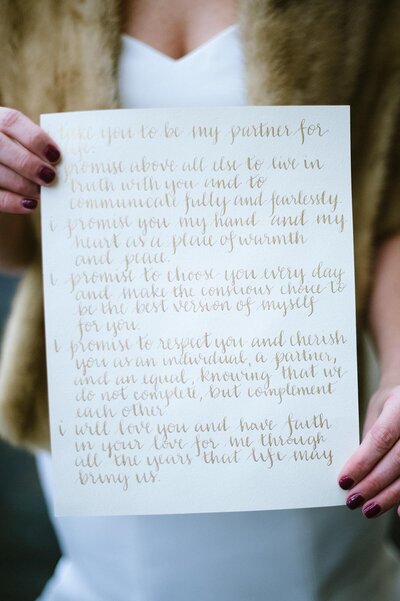 take you to be my partner for
life:
promise above all else to live in
truth with you and to
communicate fully and fearlessly
i promise you my hand and my
heart as a place of warmth
and peace.
i promise to choose you every day
and make the conscious choice to
be the best version of myself
for you.
i promise to respect you and cherish
you as an individual, a partner,
and an equal, knowing that we
do not complete, but complement
each other.
i will love you and have faith
in your love for me through
all the years that life may
bring us.